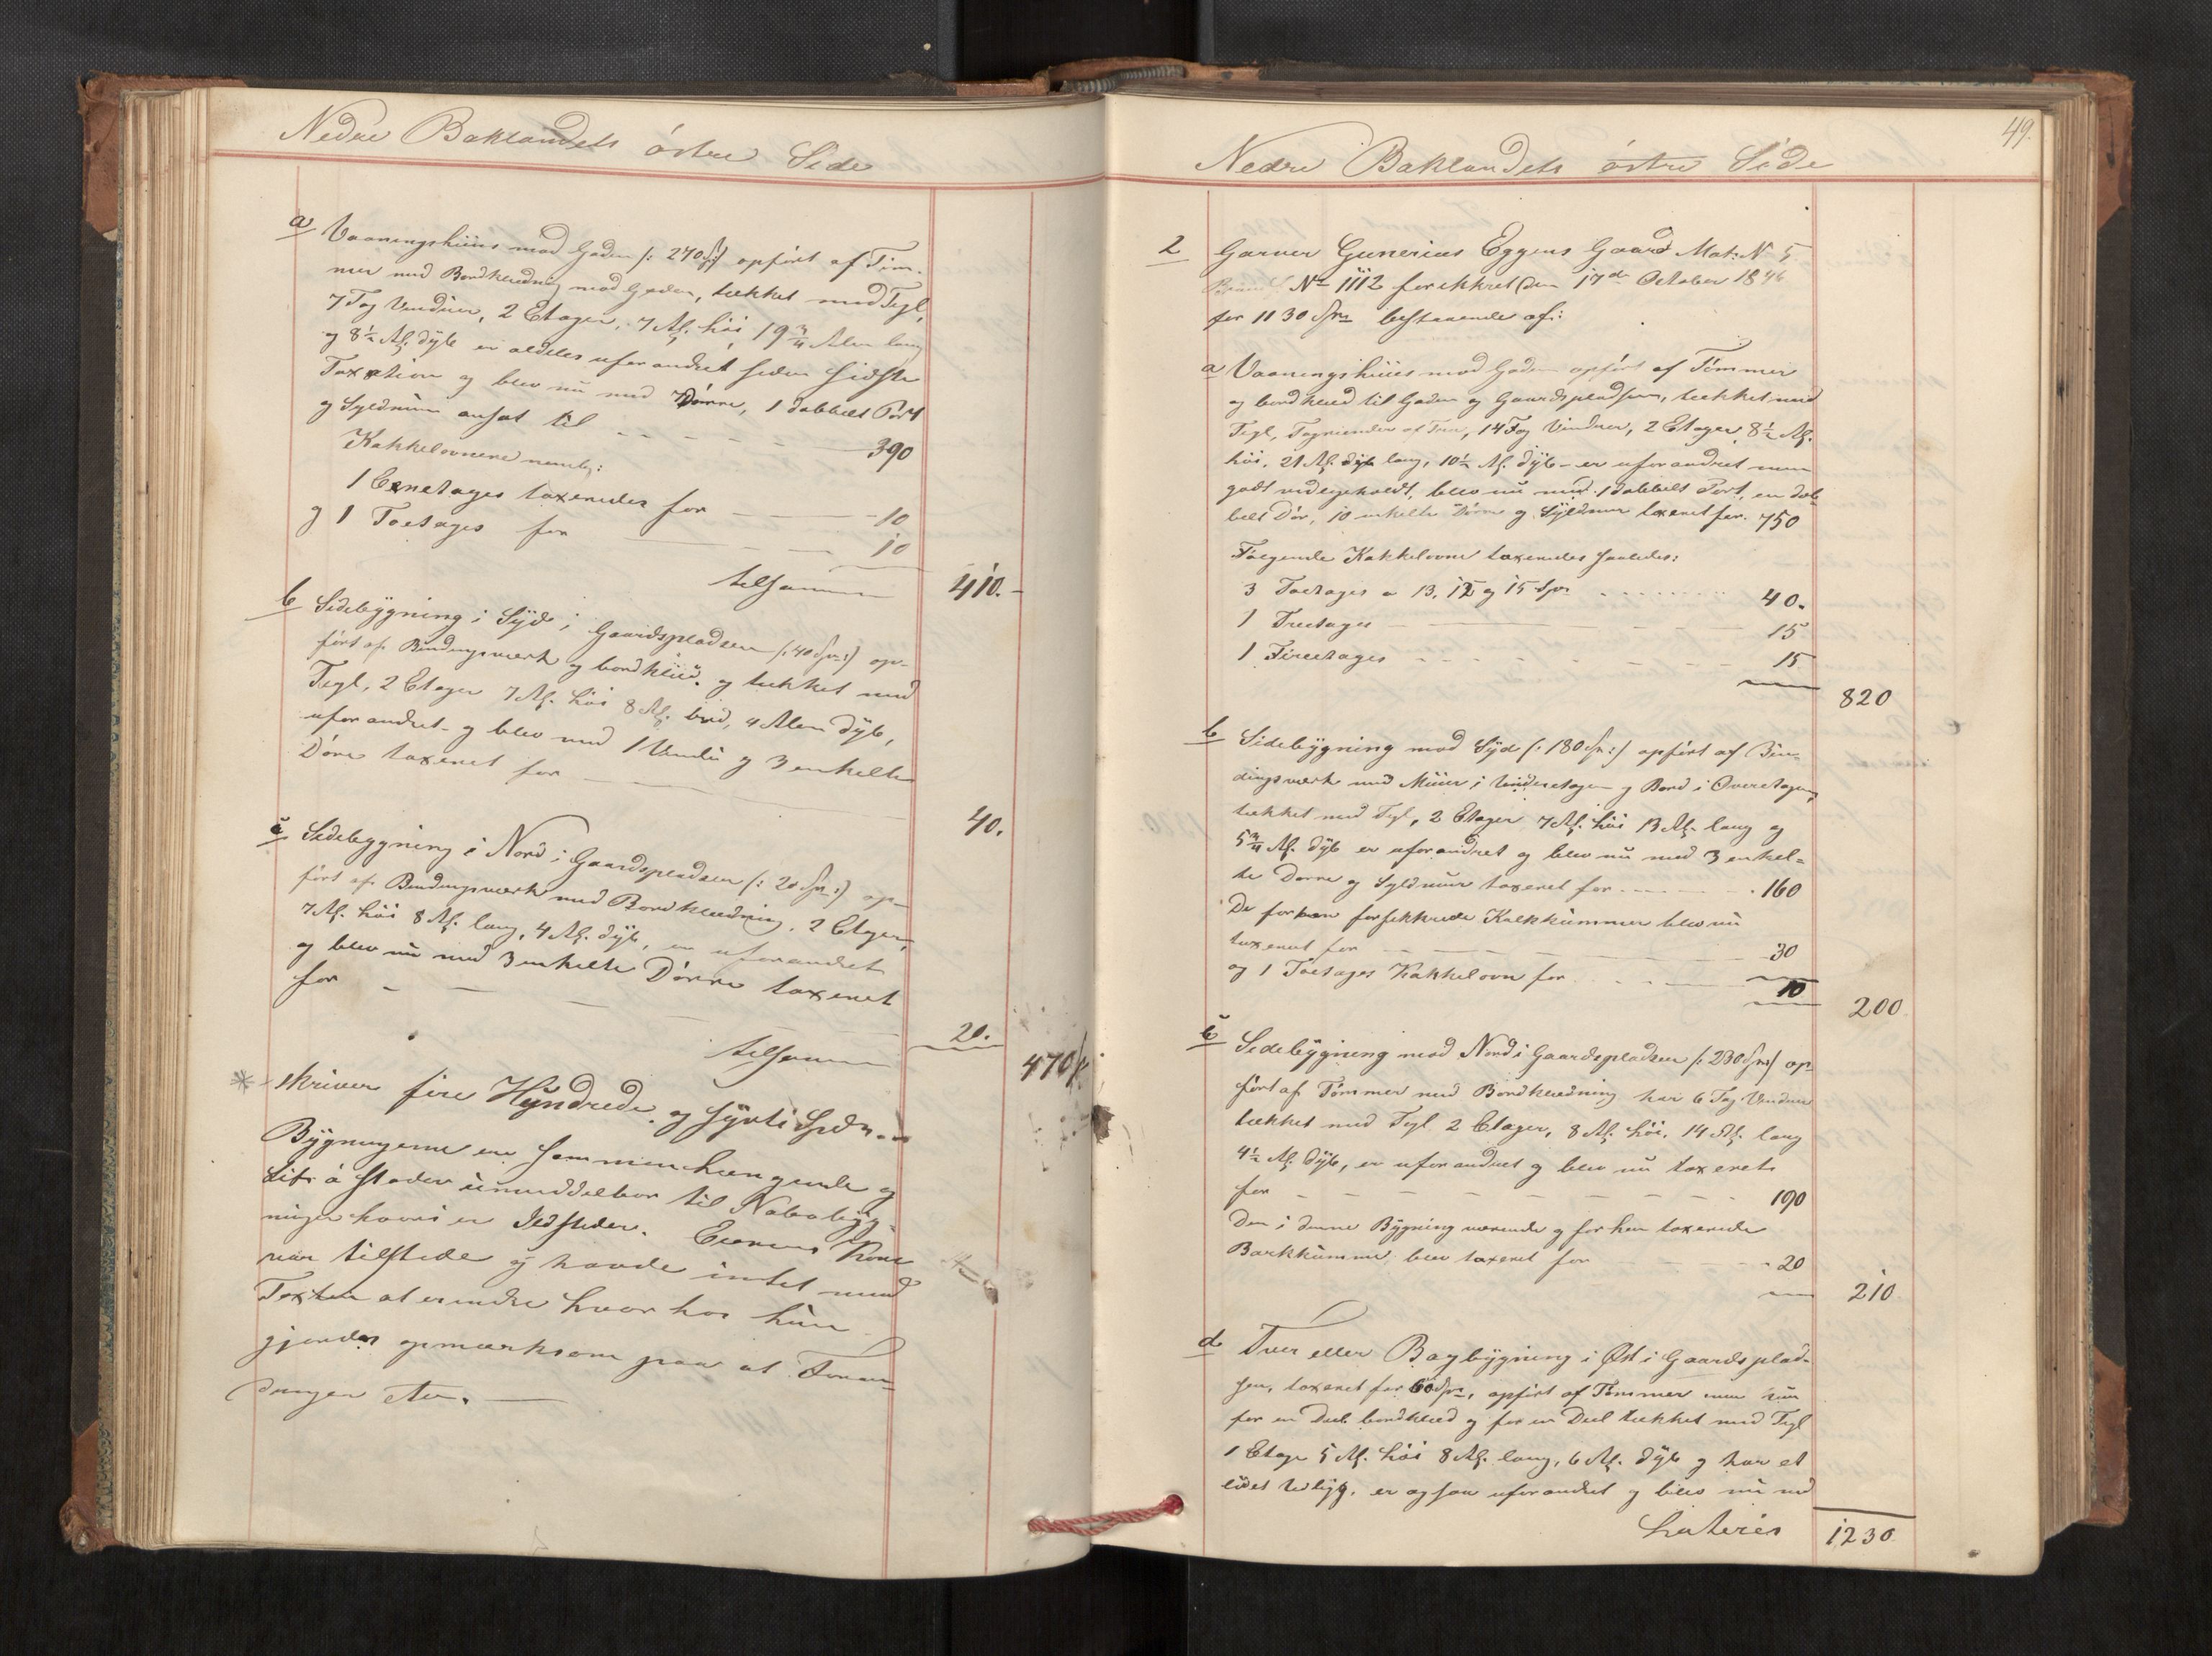 Nedre Baklandets östre Side
a Vaaningshuus mod Gaden /: 270 Spd :/ opført af Töm-
mer med Bordklædning mod Gaden, tækket med Tegl,
7 Fag Vinduer, 2 Etager, 7 Al. höi, 19 3/4 Alen lang
og 8 1/2 Al. dyb er aldeles uforandret siden sidste
Taxation og blev nu med 7 Dörre, 1 dobbelt Port
og Syldmuur ansat til 390
Kakkelovnene nemlig:
1 Eenetages taxeredes for 10
og 1 Toetages for 10
tilsammen 410.-
b Sidebygning i Syd i Gaardspladsen /: 40 Spd :/ op-
ført af Bindingsværk og bordklæd. og tækket med
Tegl, 2 Etager 7 Al. höi 8 Al. bred, 4 Alen dyb,
uforandret og blev med 1 Vindu og 3 enkelte
Döre taxeret for 40.
c Sidebygning i Nord i Gaardspladsen /: 20 Spd :/ op-
ført af Bindingsværk med Bordklædning, 2 Etager,
7 Al. höi 8 Al. lang, 4 Al. dyb, er uforandret
og blev nu med 3 enkelte Dörre taxeret
for 20.
tilsammen 470
skriver fire Hundrede og syvti Spdr.
Bygningerne ere sammenhængende og
stöde umiddelbar til Nabobyg-
ninger hvori er Ildsteder. Eierens Kone
var tilstede og havde intet mod
Taxten at erindre hvorhos hun
gjordes opmærksom paa at Foran-
dringer etc.
49.
Nedre Baklandets östre Side
2 Garver Gunerius Eggens Gaard Mat: No 5
Brand No 1112 forsikkret den 17de October 1846
for 1130 Spd bestaaende af:
a Vaaningshuus mod Gaden opfört af Tömmer
og bordklæd til Gaden og Gaardspladsen, tækket med
Tegl, Tagrender af Træ, 14 Fag Vinduer, 2 Etager 8 1/2 Al.
höi, 21 Al. lang, 10 1/2 Al. dyb - er uforandret men
godt vedligeholdt, blev nu med 1 dobbelt Port, en dob-
belt Dör, 10 enkelte Dörre og Syldmuur taxeret for 750
Følgende Kakkelovne taxeredes saaledes:
3 Toetages a 13, 12 og 15 Spd 40.
1 Treetages 15
1 Fireetages 15
820
b Sidebygning mod Syd /: 180 Spd :/ opfört af Bin-
dingsværk med Muur i Underetagen og Bord i Overetagen,
tækket med Tegl, 2 Etager 7 Al. höi 13 Al. lang og
5 3/4 Al. dyb er uforandret og blev nu med 3 enkel-
te Dørre og Syldmuur taxeret for 160
De forhen forsikkrede Kalkkummer blev nu
taxeret for 30
og 1 Toetages Kakkelovn for 10
200
c Sidebygning mod Nord i Gaardspladsen /: 230 Spd :/ op-
fört af Tömmer med Bordklædning har 6 Fag Vinduer
tækket med Tegl 2 Etager, 8 Al. höi, 14 Al. lang
4 1/2 Al. dyb, er uforandret og blev nu taxeret
for 190
Den i denne Bygning værende og forhen taxerede
Barkkumme blev taxeret for 20
210
d Tver eller Bagbygning i Øst i Gaardsplad-
sen, taxeret for 60 Spd, opfört af Tömmer men kun
for en Deel bordklæd og for en Deel tækket med Tegl
1 Etage 5 Al. höi 8 Al. lang, 6 Al. dyb og har et
lidet Udbygg. er ogsaa uforandret og blev nu med
Lateris 1230